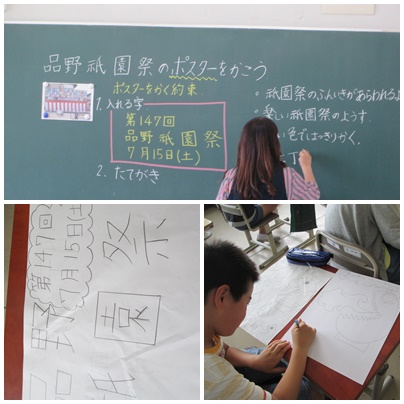 品野祇園祭のポスターをかこう
ポスターをかく約束
1. 入れる字
第147回
品野祇園祭
7月15日(土)
2. たてがき
。祇園祭のふんいきがあらわれるよ
。楽しい祇園祭のようす
い色ではっきりかく.
丁
第147回
7月15日(土
品野祇園祭